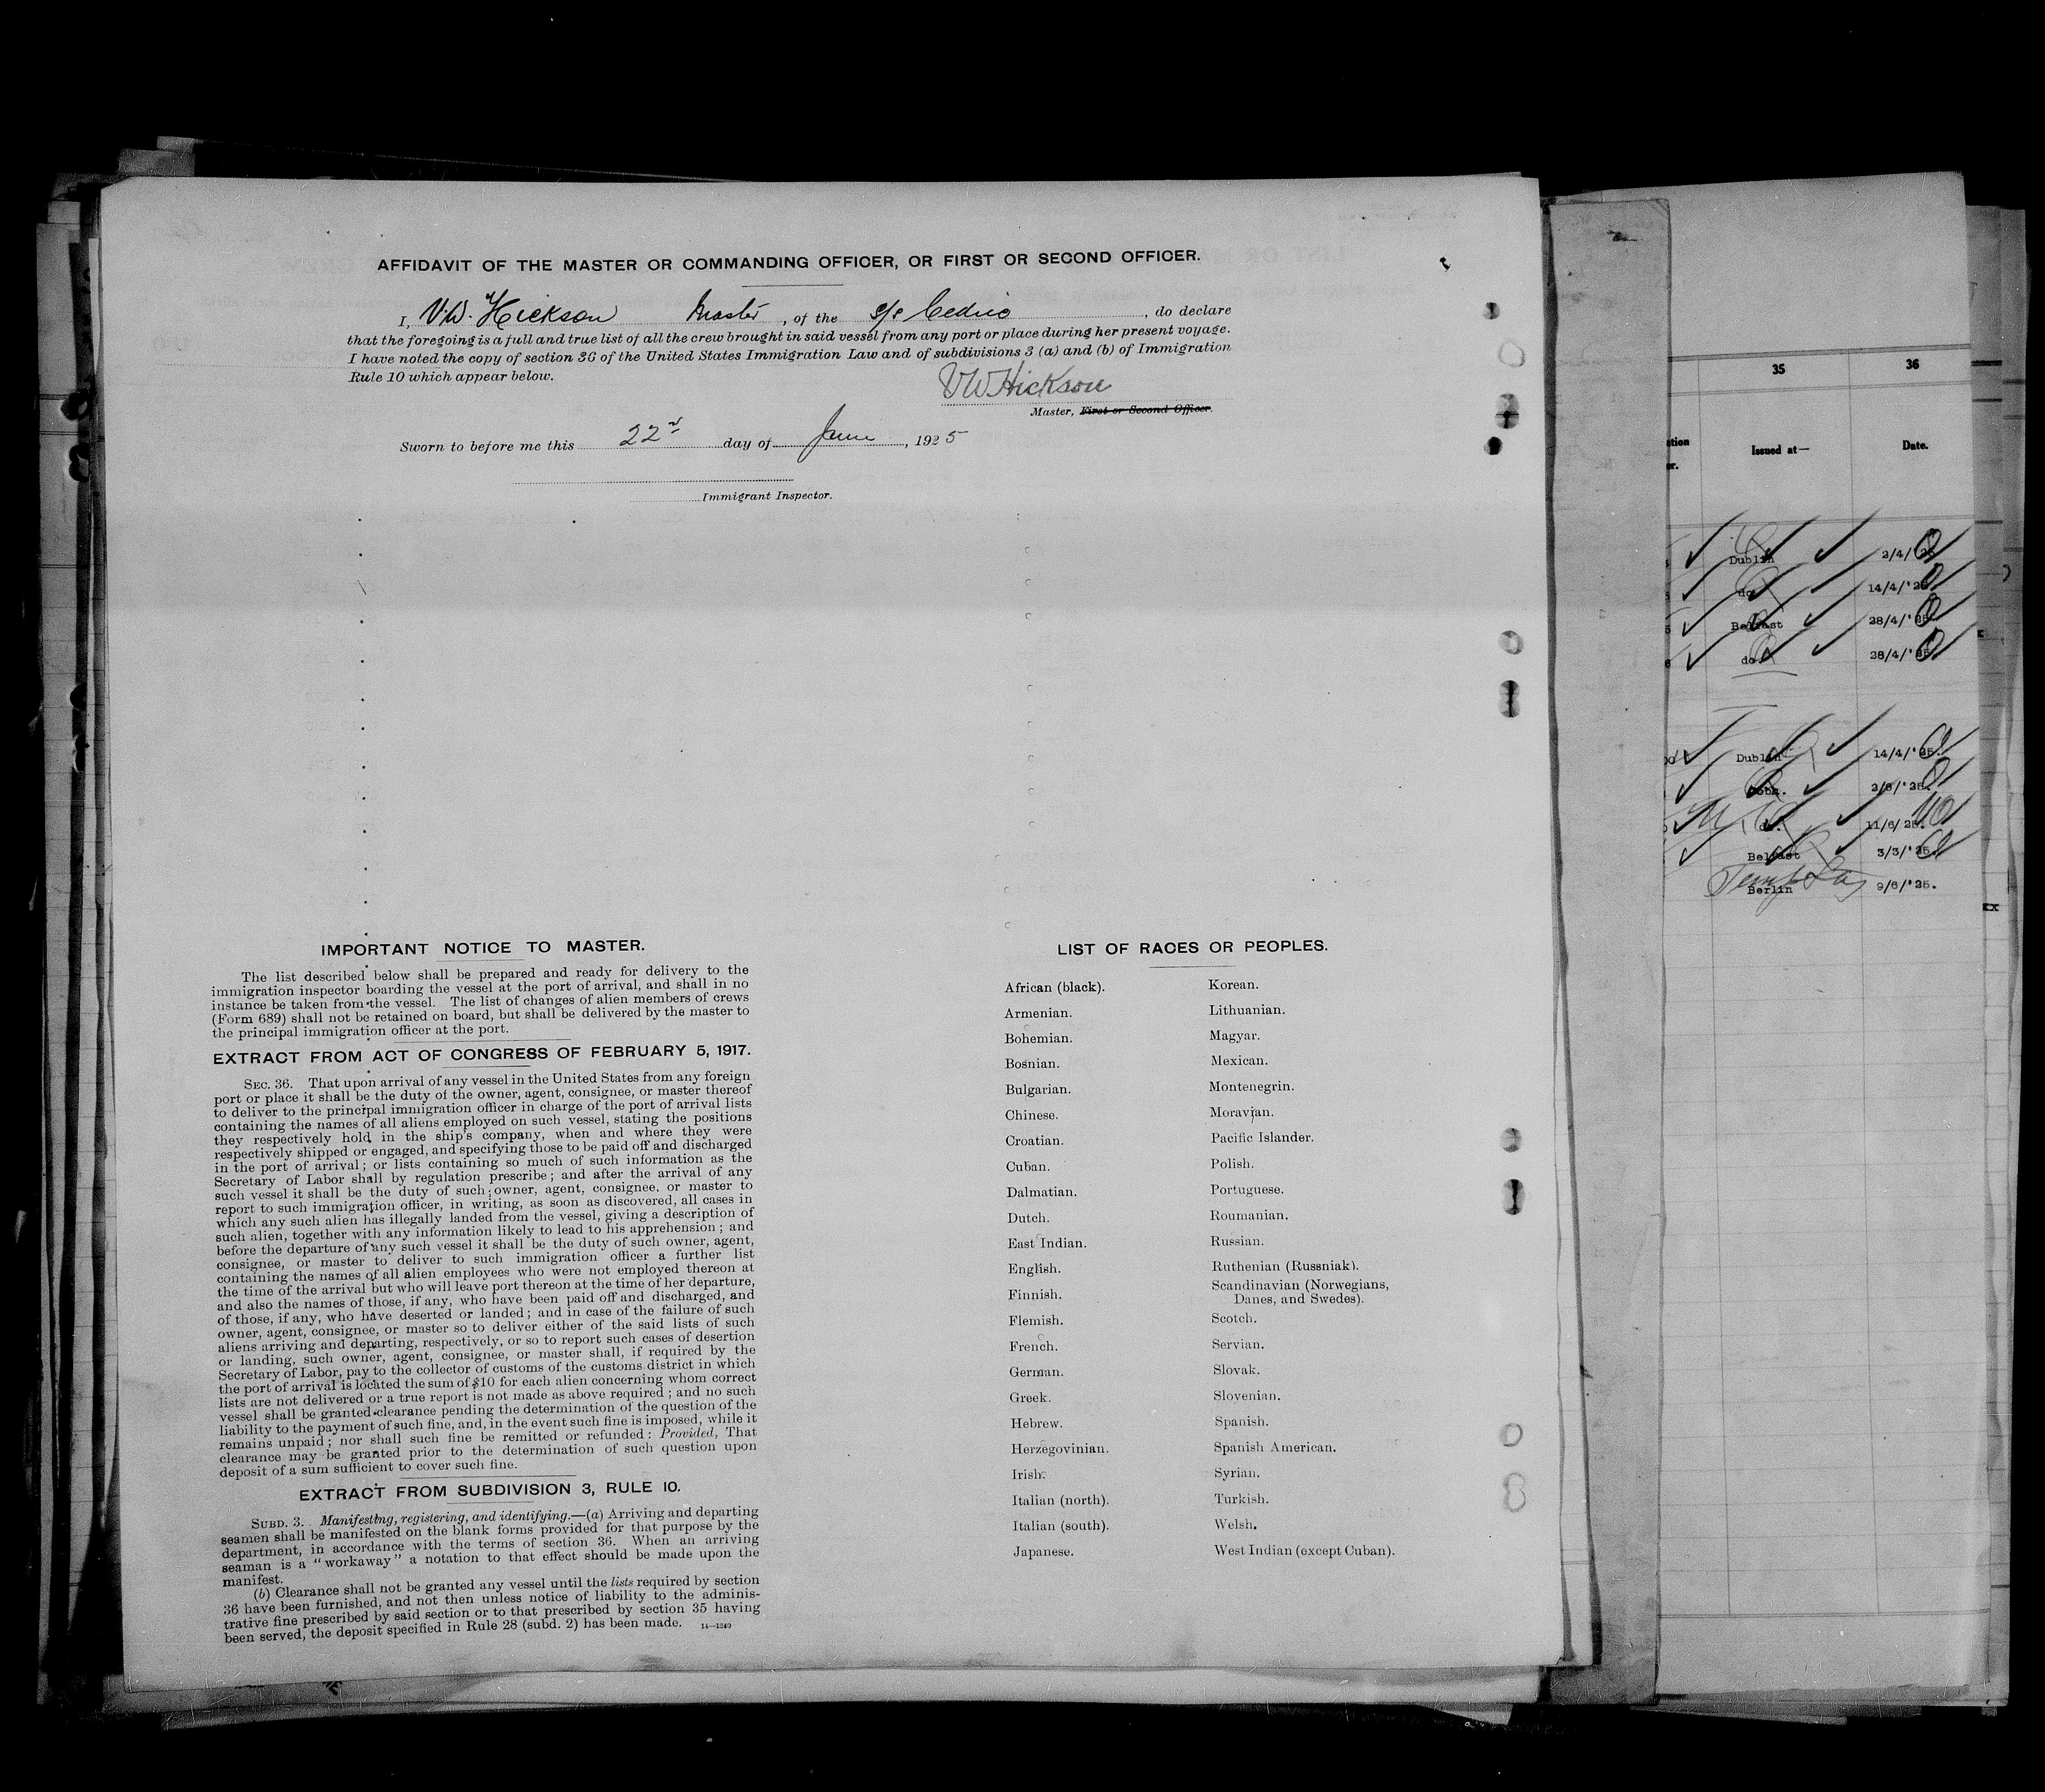 AFFIDAVIT OF THE MASTER OR COMMANDING OFFICER, OR FIRST OR SECOND OFFICER.
I, V.W. Hickson Master, of the s/s Cedric, do declare
that the foregoing is a full and true list of all the crew brought in said vessel from any port or place during her present voyage.
I have noted the copy of section 36 of the United States Immigration Law and of subdivisions 3 (a) and (b) of Immigration
Rule 10 which appear below.
VW Hickson
Master, First or Second Officer.
Sworn to before me this 22nd day of June, 1925
Immigrant Inspector.
IMPORTANT NOTICE TO MASTER.
The list described below shall be prepared and ready for delivery to the
immigration inspector boarding the vessel at the port of arrival, and shall in no
instance be taken from the vessel. The list of changes of alien members of crews
(Form 689) shall not be retained on board, but shall be delivered by the master to
the principal immigration officer at the port.
EXTRACT FROM ACT OF CONGRESS OF FEBRUARY 5, 1917.
SEC. 36. That upon arrival of any vessel in the United States from any foreign
port or place it shall be the duty of the owner, agent, consignee, or master thereof
to deliver to the principal immigration officer in charge of the port of arrival lists
containing the names of all aliens employed on such vessel, stating the positions
they respectively hold in the ship's company, when and where they were
respectively shipped or engaged, and specifying those to be paid off and discharged
in the port of arrival; or lists containing so much of such information as the
Secretary of Labor shall by regulation prescribe; and after the arrival of any
such vessel it shall be the duty of such owner, agent, consignee, or master to
report to such immigration officer, in writing, as soon as discovered, all cases in
which any such alien has illegally landed from the vessel, giving a description of
such alien, together with any information likely to lead to his apprehension; and
before the departure of any such vessel it shall be the duty of such owner, agent,
consignee, or master to deliver to such immigration officer a further list
containing the names of all alien employees who were not employed thereon at
the time of the arrival but who will leave port thereon at the time of her departure,
and also the names of those, if any, who have been paid off and discharged, and
of those, if any, who have deserted or landed; and in case of the failure of such
owner, agent, consignee, or master so to deliver either of the said lists of such
aliens arriving and departing, respectively, or so to report such cases of desertion
or landing, such owner, agent, consignee, or master shall, if required by the
Secretary of Labor, pay to the collector of customs of the customs district in which
the port of arrival is located the sum of $10 for each alien concerning whom correct
lists are not delivered or a true report is not made as above required; and no such
vessel shall be granted clearance pending the determination of the question of the
liability to the payment of such fine, and, in the event such fine is imposed, while it
remains unpaid; nor shall such fine be remitted or refunded: Provided, That
clearance may be granted prior to the determination of such question upon
deposit of a sum sufficient to cover such fine.
EXTRACT FROM SUBDIVISION 3, RULE 10.
SUBD. 3. Manifesting, registering, and identifying.—(a) Arriving and departing
seamen shall be manifested on the blank forms provided for that purpose by the
department, in accordance with the terms of section 36. When an arriving
seaman is a "workaway" a notation to that effect should be made upon the
manifest.
(b) Clearance shall not be granted any vessel until the lists required by section
36 have been furnished, and not then unless notice of liability to the adminis-
trative fine prescribed by said section or to that prescribed by section 35 having
been served, the deposit specified in Rule 28 (subd. 2) has been made. 14—1249
LIST OF RACES OR PEOPLES.
African (black).
Armenian.
Bohemian.
Bosnian.
Bulgarian.
Chinese.
Croatian.
Cuban.
Dalmatian.
Dutch.
East Indian.
English.
Finnish.
Flemish.
French.
German.
Greek.
Hebrew.
Herzegovinian.
Irish.
Italian (north).
Italian (south).
Japanese.
Korean.
Lithuanian.
Magyar.
Mexican.
Montenegrin.
Moravian.
Pacific Islander.
Polish.
Portuguese.
Roumanian.
Russian.
Ruthenian (Russniak).
Scandinavian (Norwegians,
Danes, and Swedes).
Scotch.
Servian.
Slovak.
Slovenian.
Spanish.
Spanish American.
Syrian.
Turkish.
Welsh.
West Indian (except Cuban).
35 36
Issued at— Date.
Dublin 2/4/'25
do. 14/4/'25
Belfast 28/4/'25
do. 28/4/'25
Dublin 14/4/'25.
Cobh. 2/6/'25.
do. 11/6/'25.
Belfast 3/3/'25.
Berlin 9/6/'25.